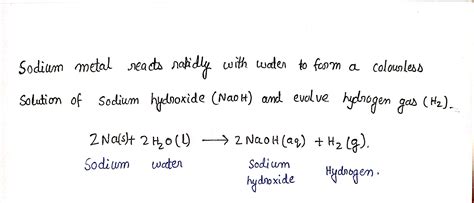 Sodium metal reacts rapidly with water to form a colourless
solution of sodium hydroxide (NaOH) and evolve hydrogen gas (H₂).
2Na(s) + 2H₂O(l) → 2NaOH(aq) + H₂(g).
Sodium water Sodium hydroxide Hydrogen.